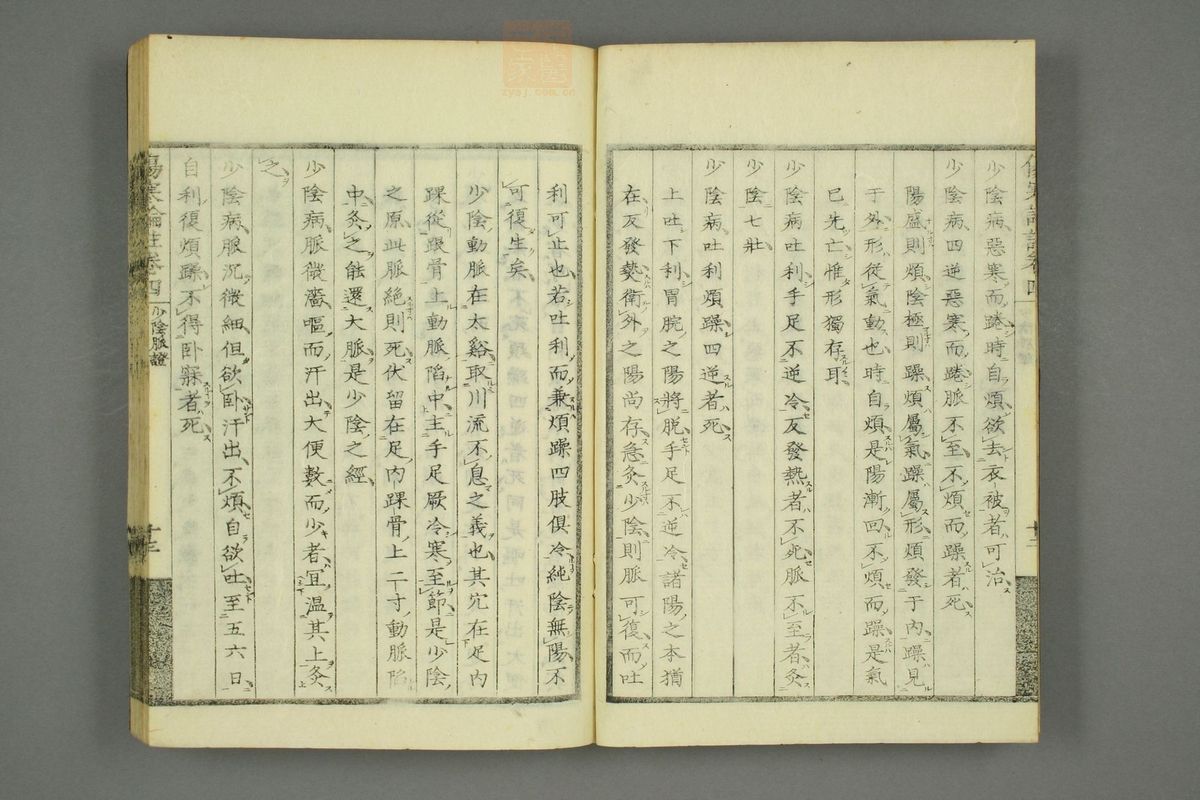 少陰病惡寒而踡時自煩欲去衣被者可治
少陰病四逆惡寒而踡脈不至不煩而躁者死
陽盛則煩陰極則躁煩屬氣躁屬形煩發于內躁見
于外形從氣動也時自煩是陽漸回不煩而躁是氣
已先亡惟形獨存耳
少陰病吐利手足不逆冷反發熱者不死脈不至者灸
少陰七壯
少陰病吐利煩躁四逆者死
上吐下利胃脘之陽將脫手足不逆冷諸陽之本猶
在反發熱衛外之陽尚存急灸少陰則脈可復而吐
利可止也若吐利而兼煩躁四肢俱冷純陰無陽不
可復生矣
少陰動脈在太谿取川流不息之義也其穴在足內
踝從跟骨上動脈陷中主手足厥冷寒至節是少陰
之原此脈絕則死伏留在足內踝骨上二寸動脈陷
中灸之能還大脈是少陰之經
少陰病脈微濇嘔而汗出大便數而少者宜溫其上灸
之
少陰病脈沉微細但欲臥汗出不煩自欲吐至五六日
自利復煩躁不得臥寐者死
傷寒論註卷四
少陰脈證
十三